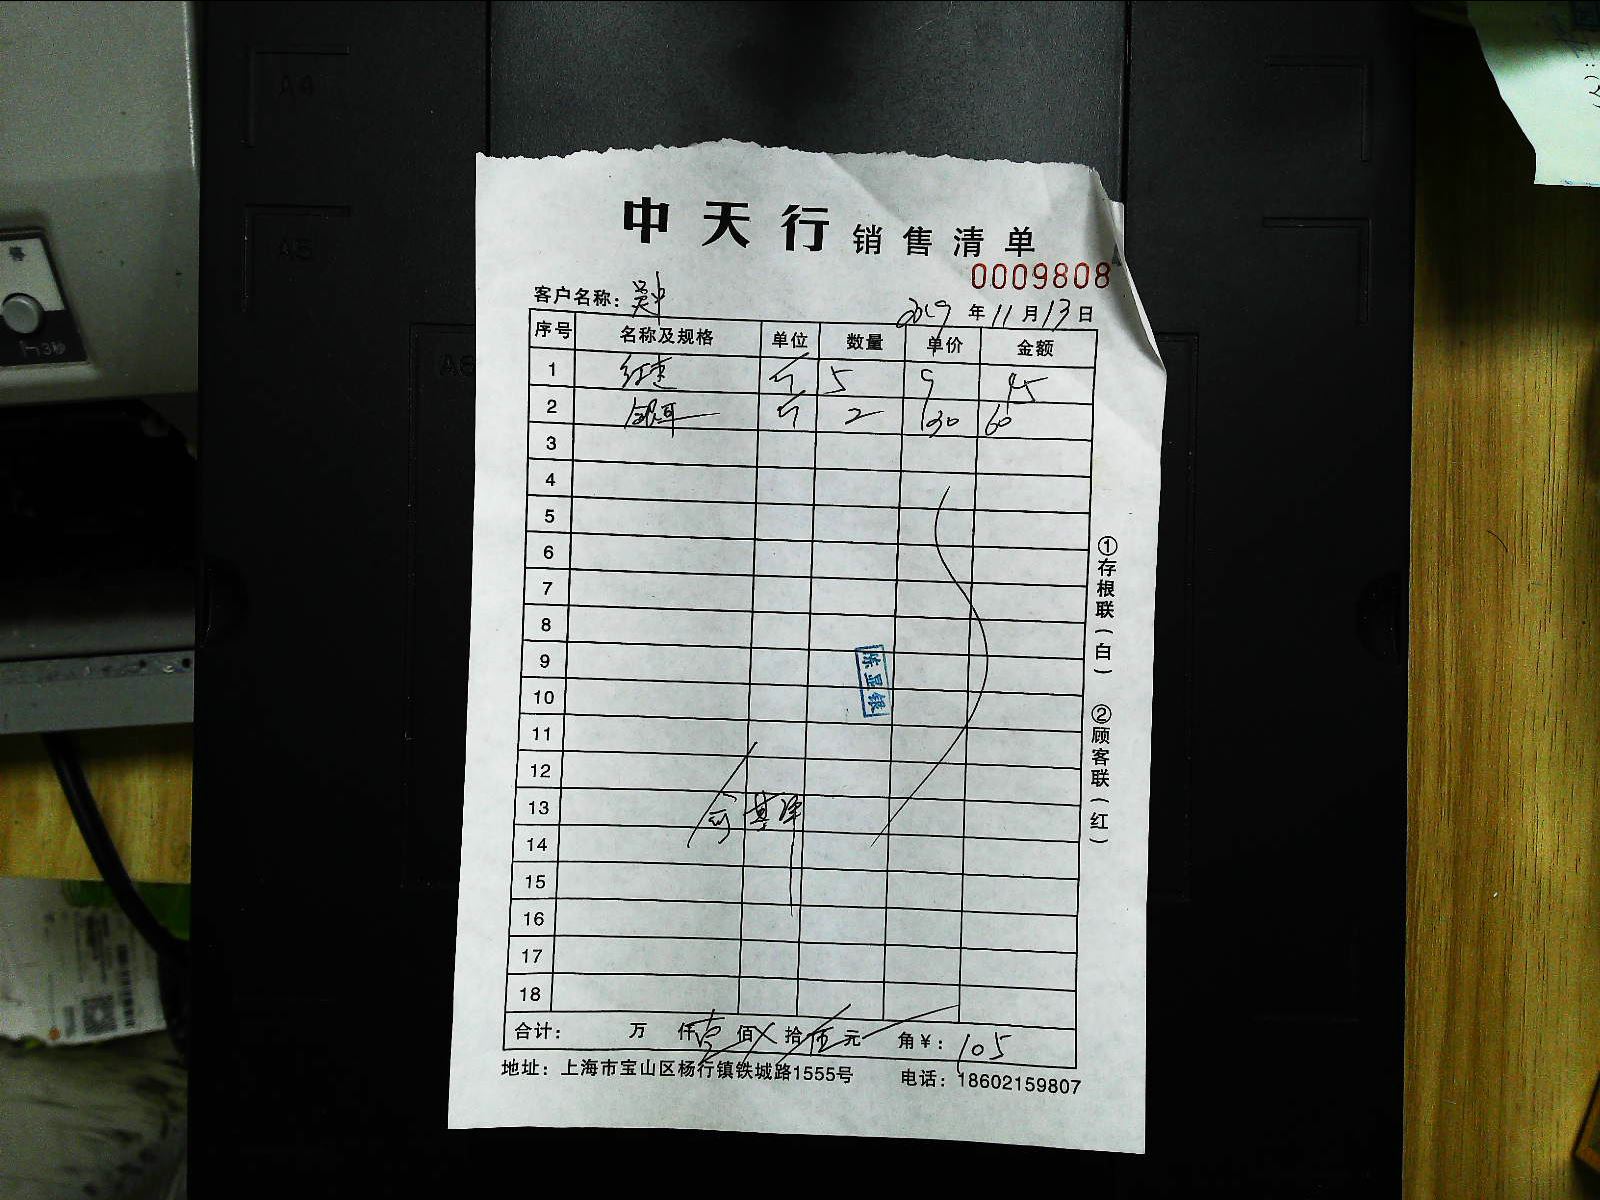 中天行 销售清单
0009808
客户名称: 吴中 2019 年 11 月 13 日
序号 名称及规格 单位 数量 单价 金额
1 红枣 斤 5 9 45
2 银耳 斤 2 130 60
3
4
5
6
7
8
9
10
11
12
13
14
15
16
17
18
陈显银
合计: 万 仟 壹 佰 拾 伍 元 角 ¥: 105
地址: 上海市宝山区杨行镇铁城路1555号 电话: 18602159807
①存根联(白) ②顾客联(红)
A4
A5
A6
3秒